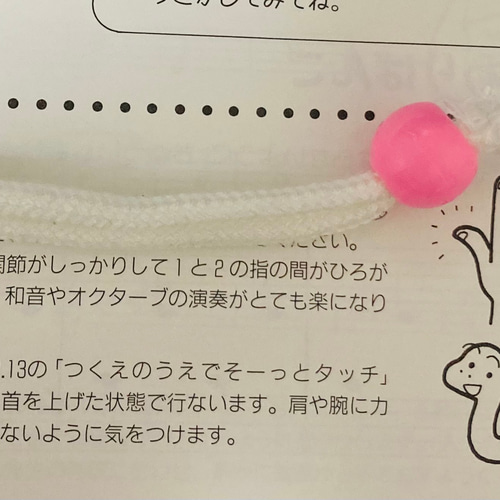 てみてね。
ください。
関節がしっかりして1と2の指の間がひろが
和音やオクターブの演奏がとても楽になり
.13の「つくえのうえでそーっとタッチ」
首を上げた状態で行ないます。肩や腕に力
ないように気をつけます。